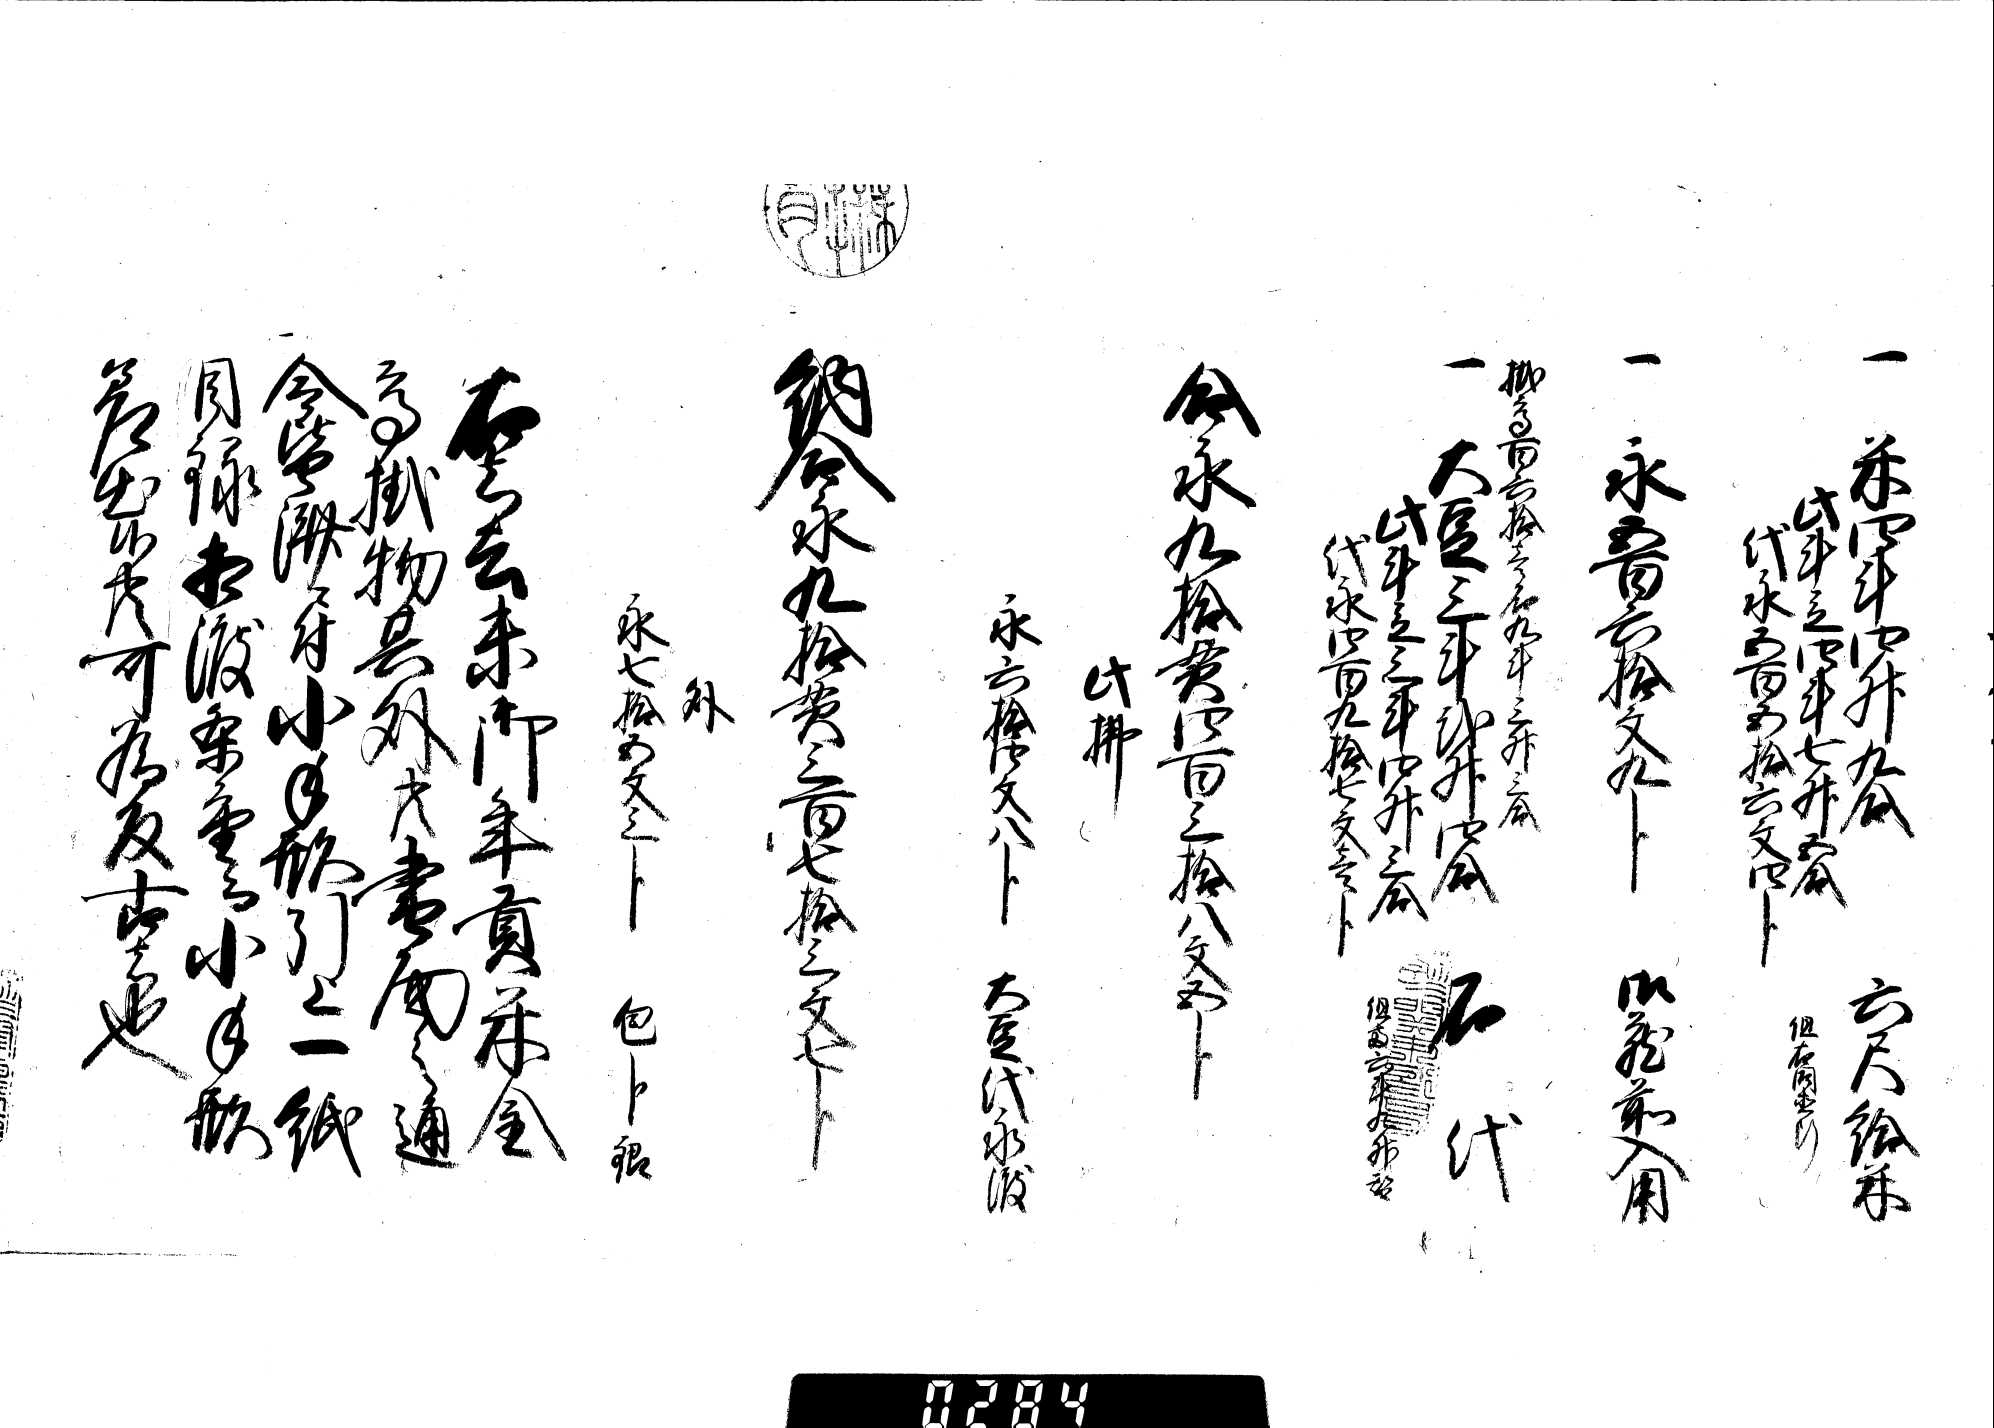 一 米四斗四升九合 六尺給米
此斗立四斗七升五合 但右同断
代永五百五拾六文四卜
一 永五百六拾文九卜 御蔵前入用
掛高百六拾壱石九斗三升三合
一 大豆三斗弐升四合 石代
此斗立三斗四升三合 但両六斗九升替
代永四百九拾七文壱卜
合永九拾貫四百三拾八文五卜
此拂
永六拾四文八卜 大豆代永渡
納合永九拾貫三百七拾三文七卜
外
永七拾五文三卜 包卜銀
右者去未御年貢米金
高掛物其外共書面之通
令皆済ニ付小手形引上一紙
目録相渡条重而小手形
差出候共可為反古者也
0284